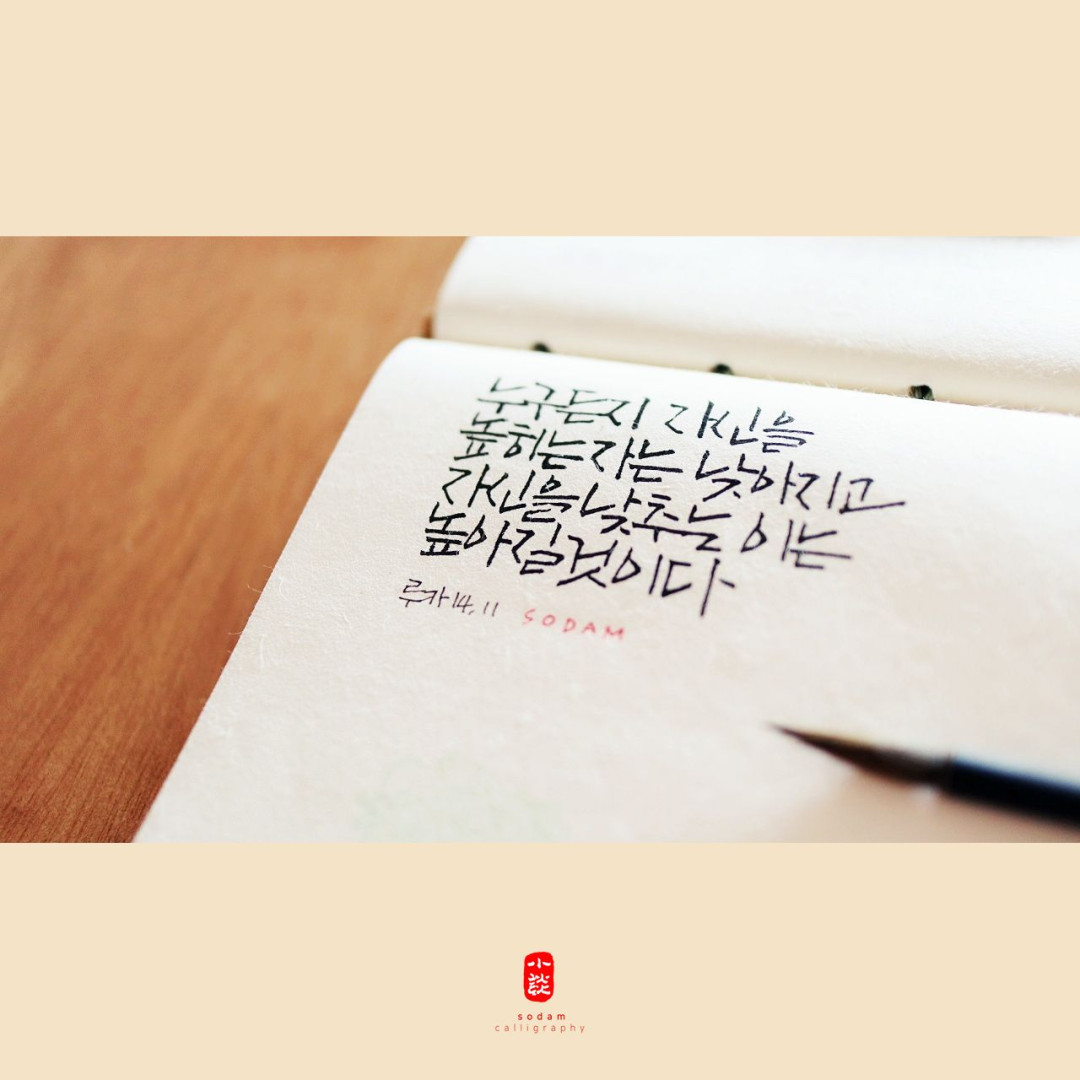 누구든지 자신을
높히는 자는 낮아지고
자신을 낮추는 이는
높아질것이다
루카 14, 11 SODAM
小談
sodam
calligraphy